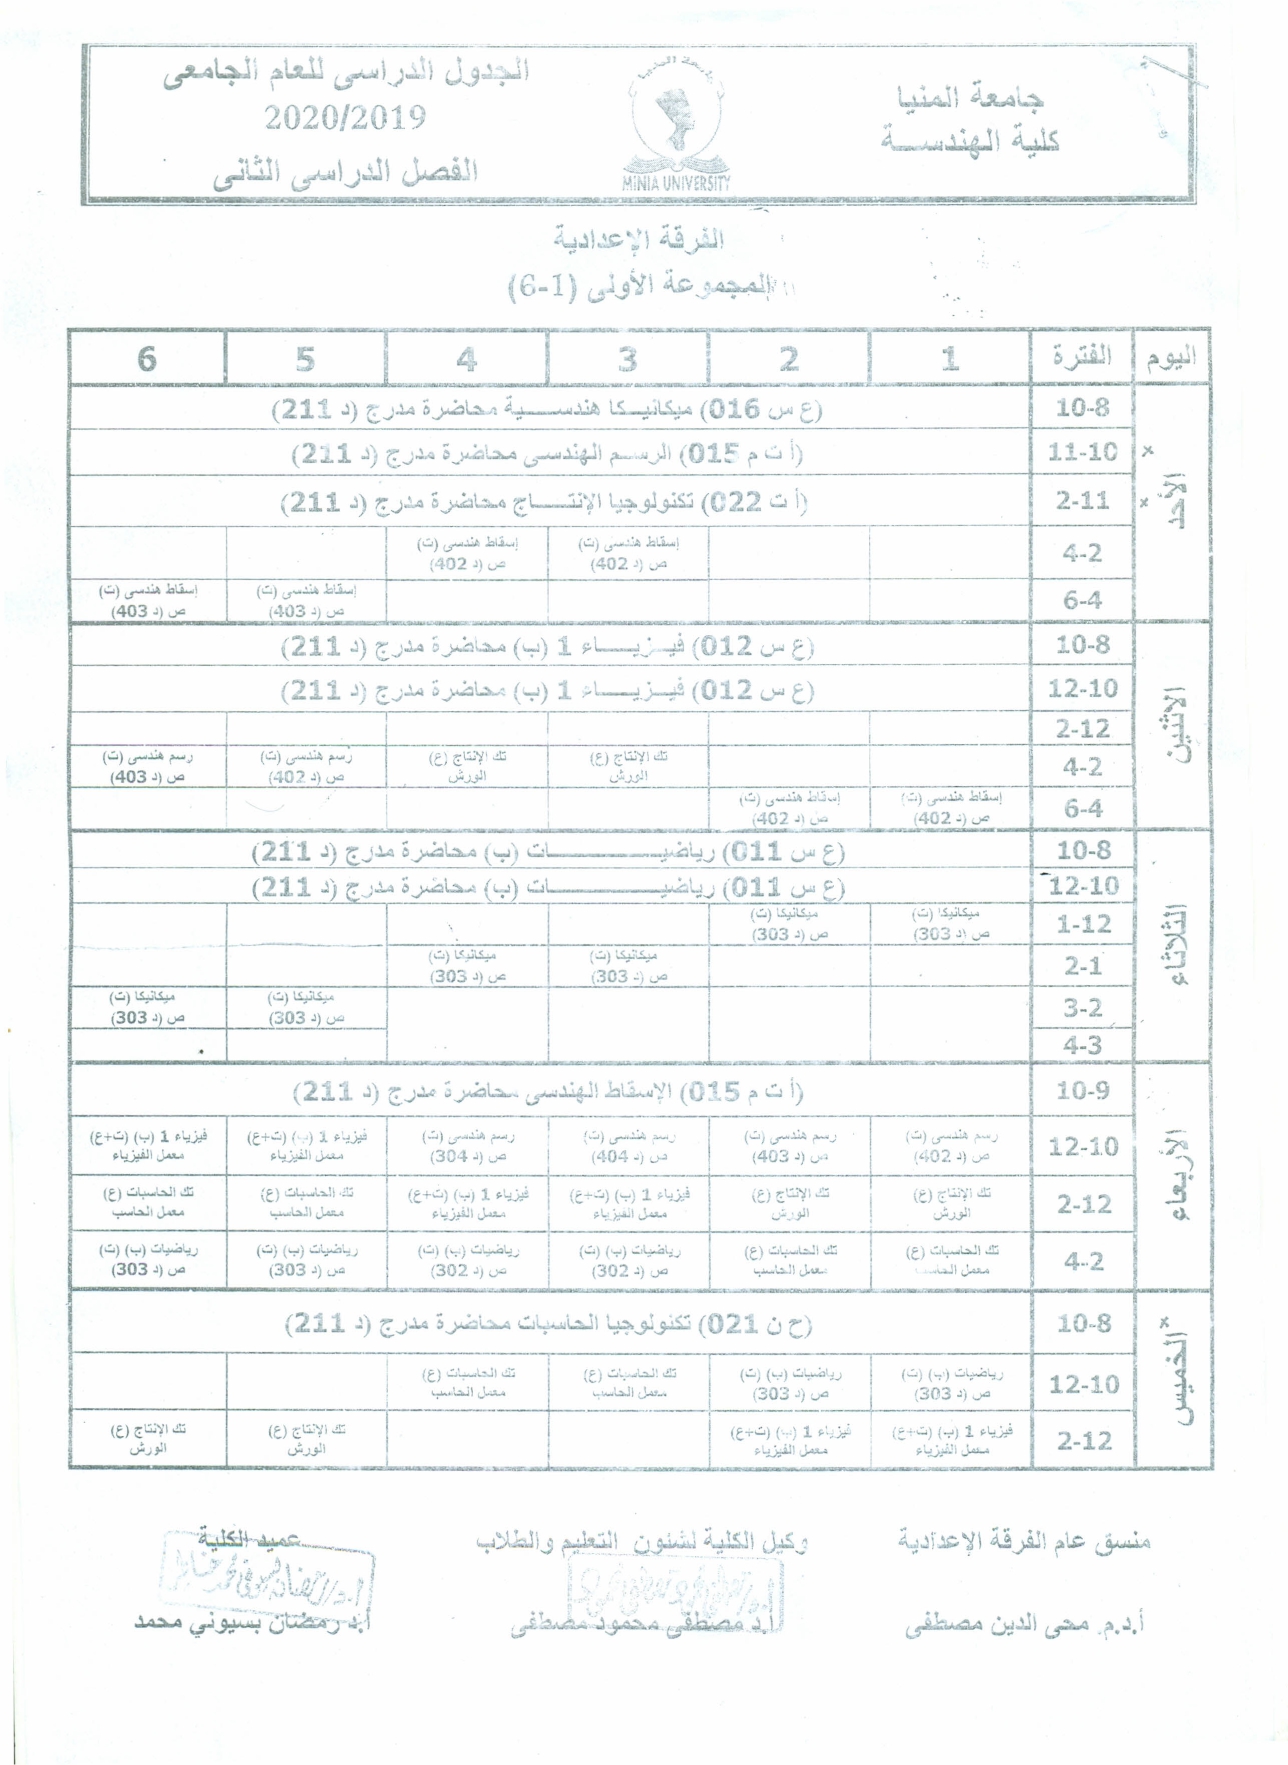 جامعة المنيا
كلية الهندســـة
MINIA UNIVERSITY
الجدول الدراسى للعام الجامعى
2020/2019
الفصل الدراسى الثانى
الفرقة الإعدادية
المجموعة الأولى (1-6)
اليوم الفترة 1 2 3 4 5 6
الأحد
10-8 (ع س 016) ميكانيـــكا هندســـــية محاضرة مدرج (د 211)
11-10 (أ ت م 015) الرسـم الهندسى محاضرة مدرج (د 211)
2-11 (أ ت 022) تكنولوجيا الإنتـــــاج محاضرة مدرج (د 211)
4-2 إسقاط هندسى (ت) إسقاط هندسى (ت)
ص (د 402) ص (د 402)
6-4 إسقاط هندسى (ت) إسقاط هندسى (ت)
ص (د 403) ص (د 403)
الاثنين
10-8 (ع س 012) فيـــزيـــــاء 1 (ب) محاضرة مدرج (د 211)
12-10 (ع س 012) فيـــزيـــــاء 1 (ب) محاضرة مدرج (د 211)
2-12
4-2 تك الإنتاج (ع) تك الإنتاج (ع) رسم هندسى (ت) رسم هندسى (ت)
الورش الورش ص (د 402) ص (د 403)
6-4 إسقاط هندسى (ت) إسقاط هندسى (ت)
ص (د 402) ص (د 402)
الثلاثاء
10-8 (ع س 011) رياضيـــــــــــــــات (ب) محاضرة مدرج (د 211)
12-10 (ع س 011) رياضيـــــــــــــــات (ب) محاضرة مدرج (د 211)
1-12 ميكانيكا (ت) ميكانيكا (ت)
ص (د 303) ص (د 303)
2-1 ميكانيكا (ت) ميكانيكا (ت)
ص (د 303) ص (د 303)
3-2 ميكانيكا (ت) ميكانيكا (ت)
ص (د 303) ص (د 303)
4-3
الأربعاء
10-9 (أ ت م 015) الإسقاط الهندسى محاضرة مدرج (د 211)
12-10 رسم هندسى (ت) رسم هندسى (ت) رسم هندسى (ت) رسم هندسى (ت) فيزياء 1 (ب) (ت+ع) فيزياء 1 (ب) (ت+ع)
ص (د 402) ص (د 403) ص (د 404) ص (د 304) معمل الفيزياء معمل الفيزياء
2-12 تك الإنتاج (ع) تك الإنتاج (ع) فيزياء 1 (ب) (ت+ع) فيزياء 1 (ب) (ت+ع) تك الحاسبات (ع) تك الحاسبات (ع)
الورش الورش معمل الفيزياء معمل الفيزياء معمل الحاسب معمل الحاسب
4-2 تك الحاسبات (ع) تك الحاسبات (ع) رياضيات (ب) (ت) رياضيات (ب) (ت) رياضيات (ب) (ت) رياضيات (ب) (ت)
معمل الحاسب معمل الحاسب ص (د 302) ص (د 302) ص (د 303) ص (د 303)
الخميس
10-8 (ح ن 021) تكنولوجيا الحاسبات محاضرة مدرج (د 211)
12-10 رياضيات (ب) (ت) رياضيات (ب) (ت) تك الحاسبات (ع) تك الحاسبات (ع)
ص (د 303) ص (د 303) معمل الحاسب معمل الحاسب
2-12 فيزياء 1 (ب) (ت+ع) فيزياء 1 (ب) (ت+ع) تك الإنتاج (ع) تك الإنتاج (ع)
معمل الفيزياء معمل الفيزياء الورش الورش
منسق عام الفرقة الإعدادية وكيل الكلية لشئون التعليم والطلاب عميد الكلية
أ.د.م. محى الدين مصطفى أ.د مصطفى محمود مصطفى أ.د رمضان بسيوني محمد